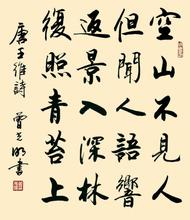 空山不見人
但聞人語響
返景入深林
復照青苔上
唐王維詩 書